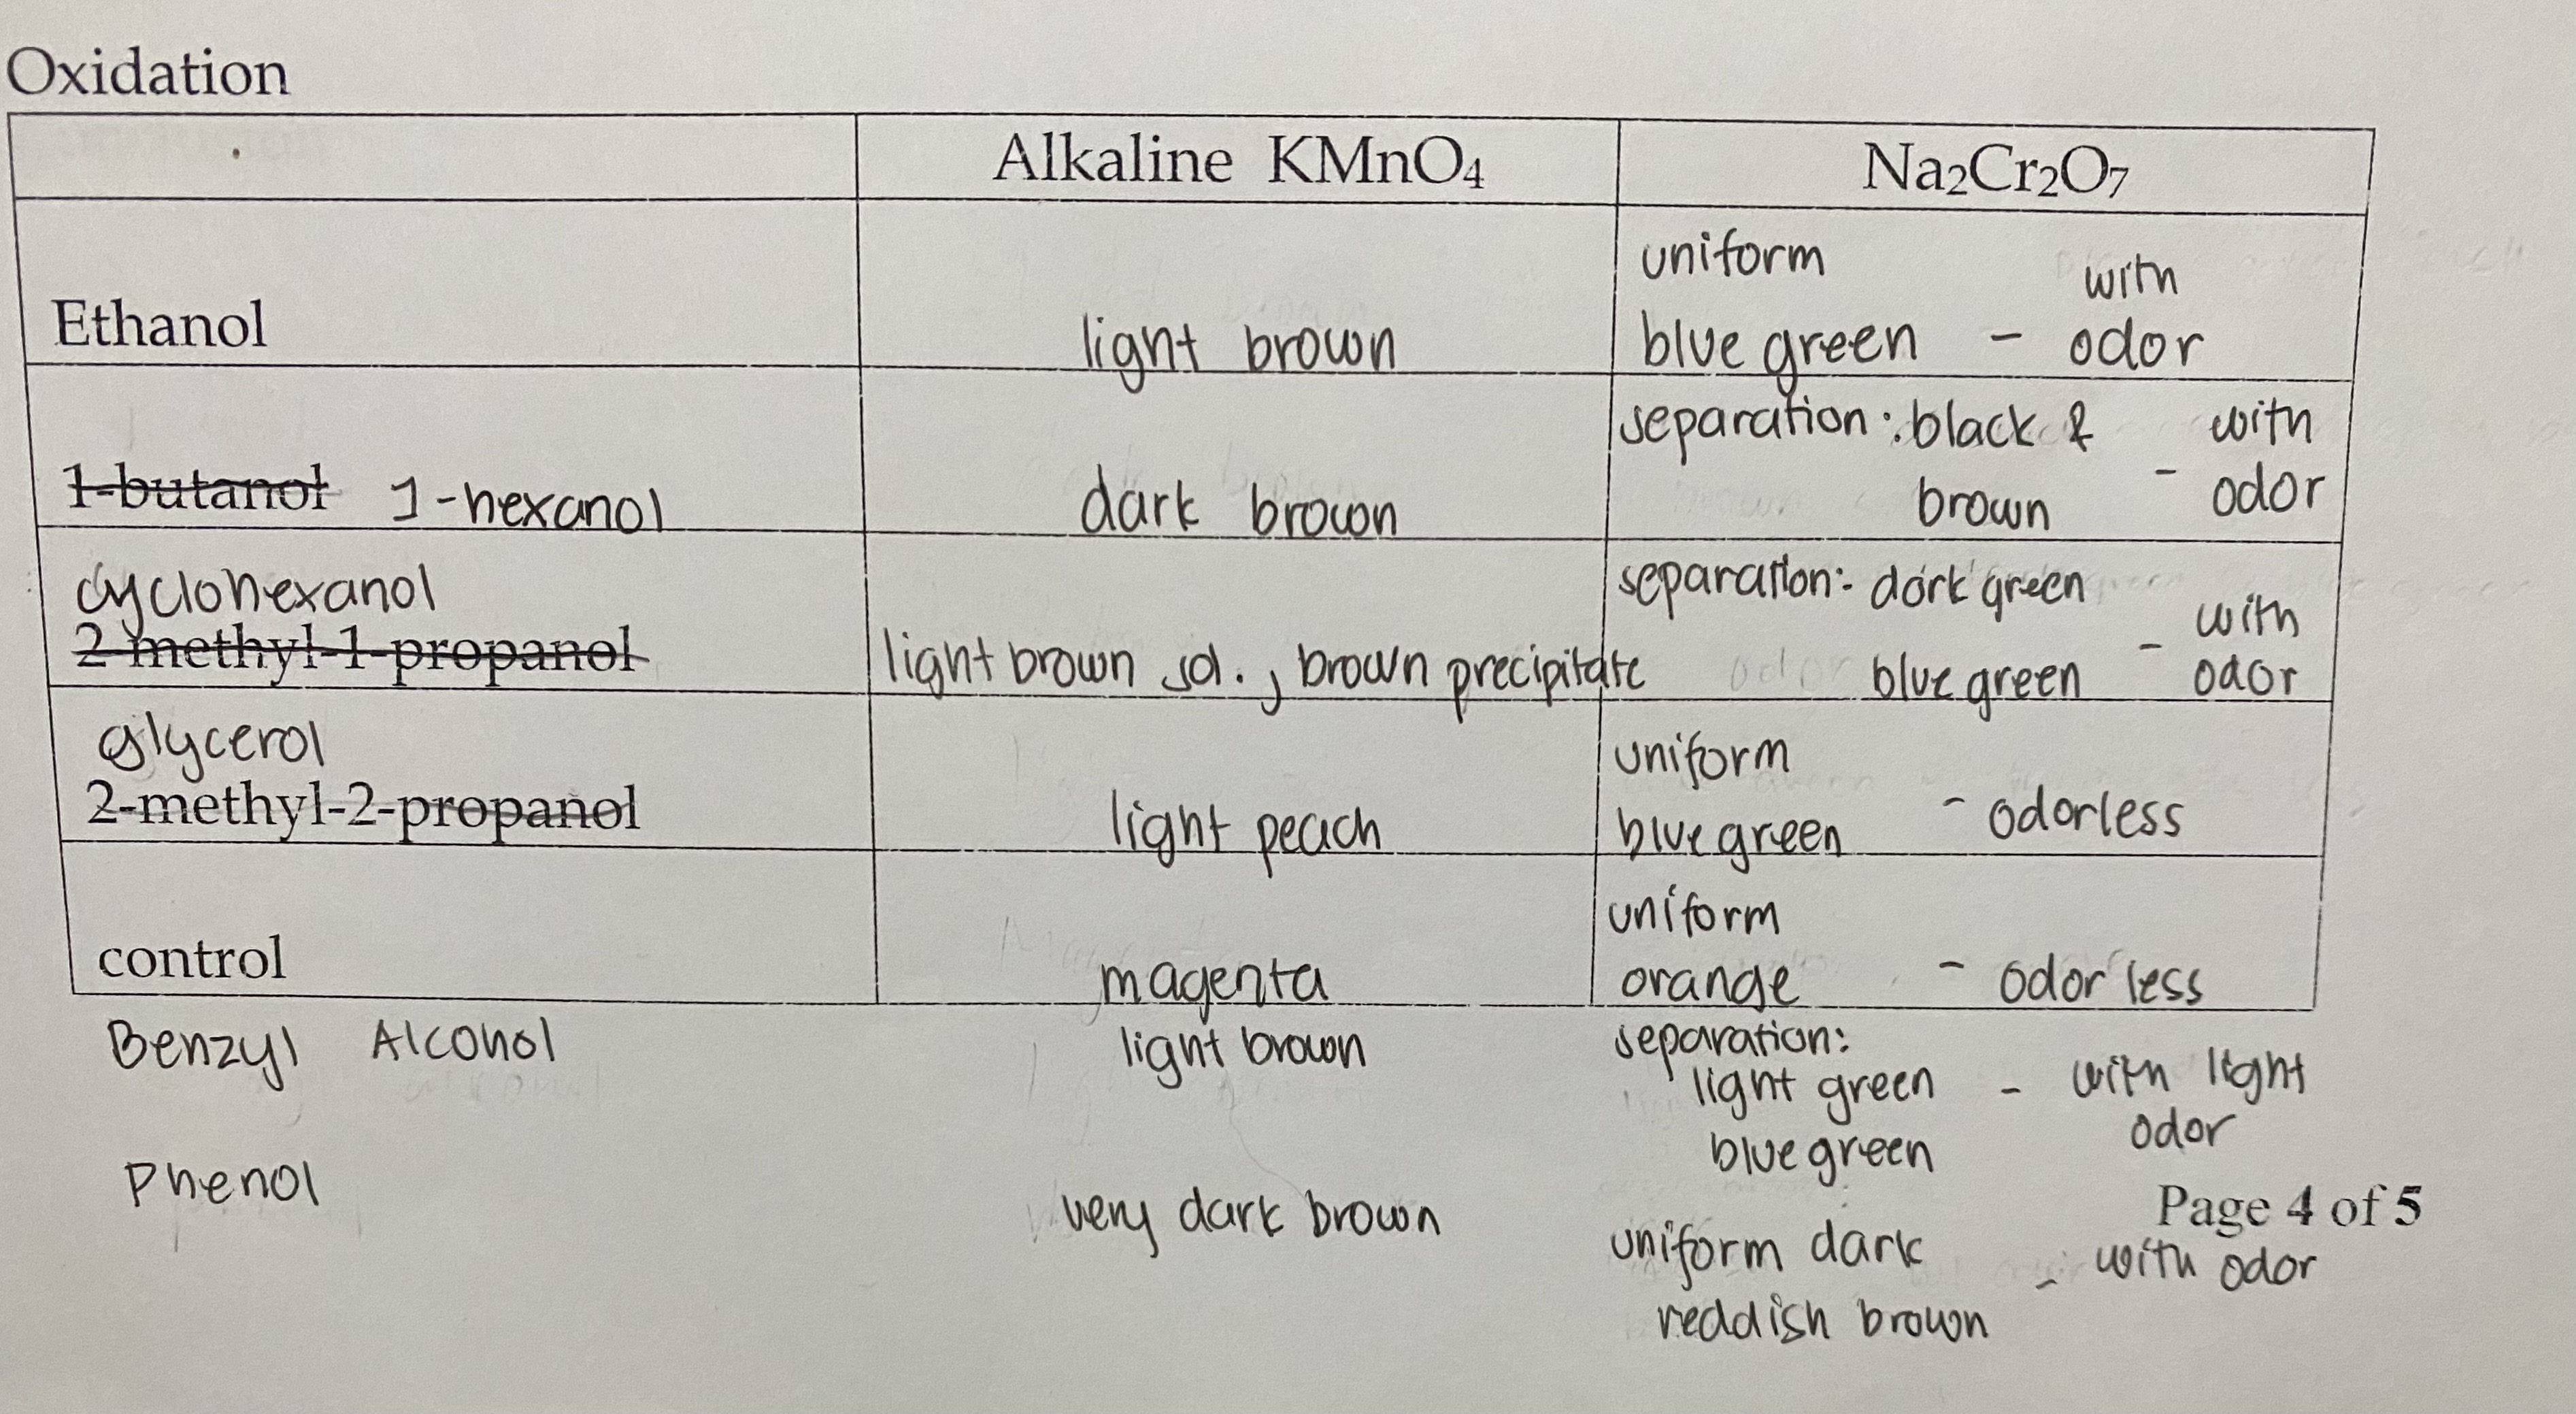 Oxidation
Alkaline KMnO4 Na2Cr2O7
Ethanol light brown uniform blue green - with odor
1-butanol 1-hexanol dark brown separation: black & brown - with odor
cyclohexanol
2-methyl-1-propanol light brown sol., brown precipitate separation: dark green blue green - with odor
glycerol
2-methyl-2-propanol light peach uniform blue green - odorless
control magenta uniform orange - odorless
Benzyl Alcohol light brown separation: light green blue green - with light odor
Phenol very dark brown uniform dark reddish brown - with odor
Page 4 of 5